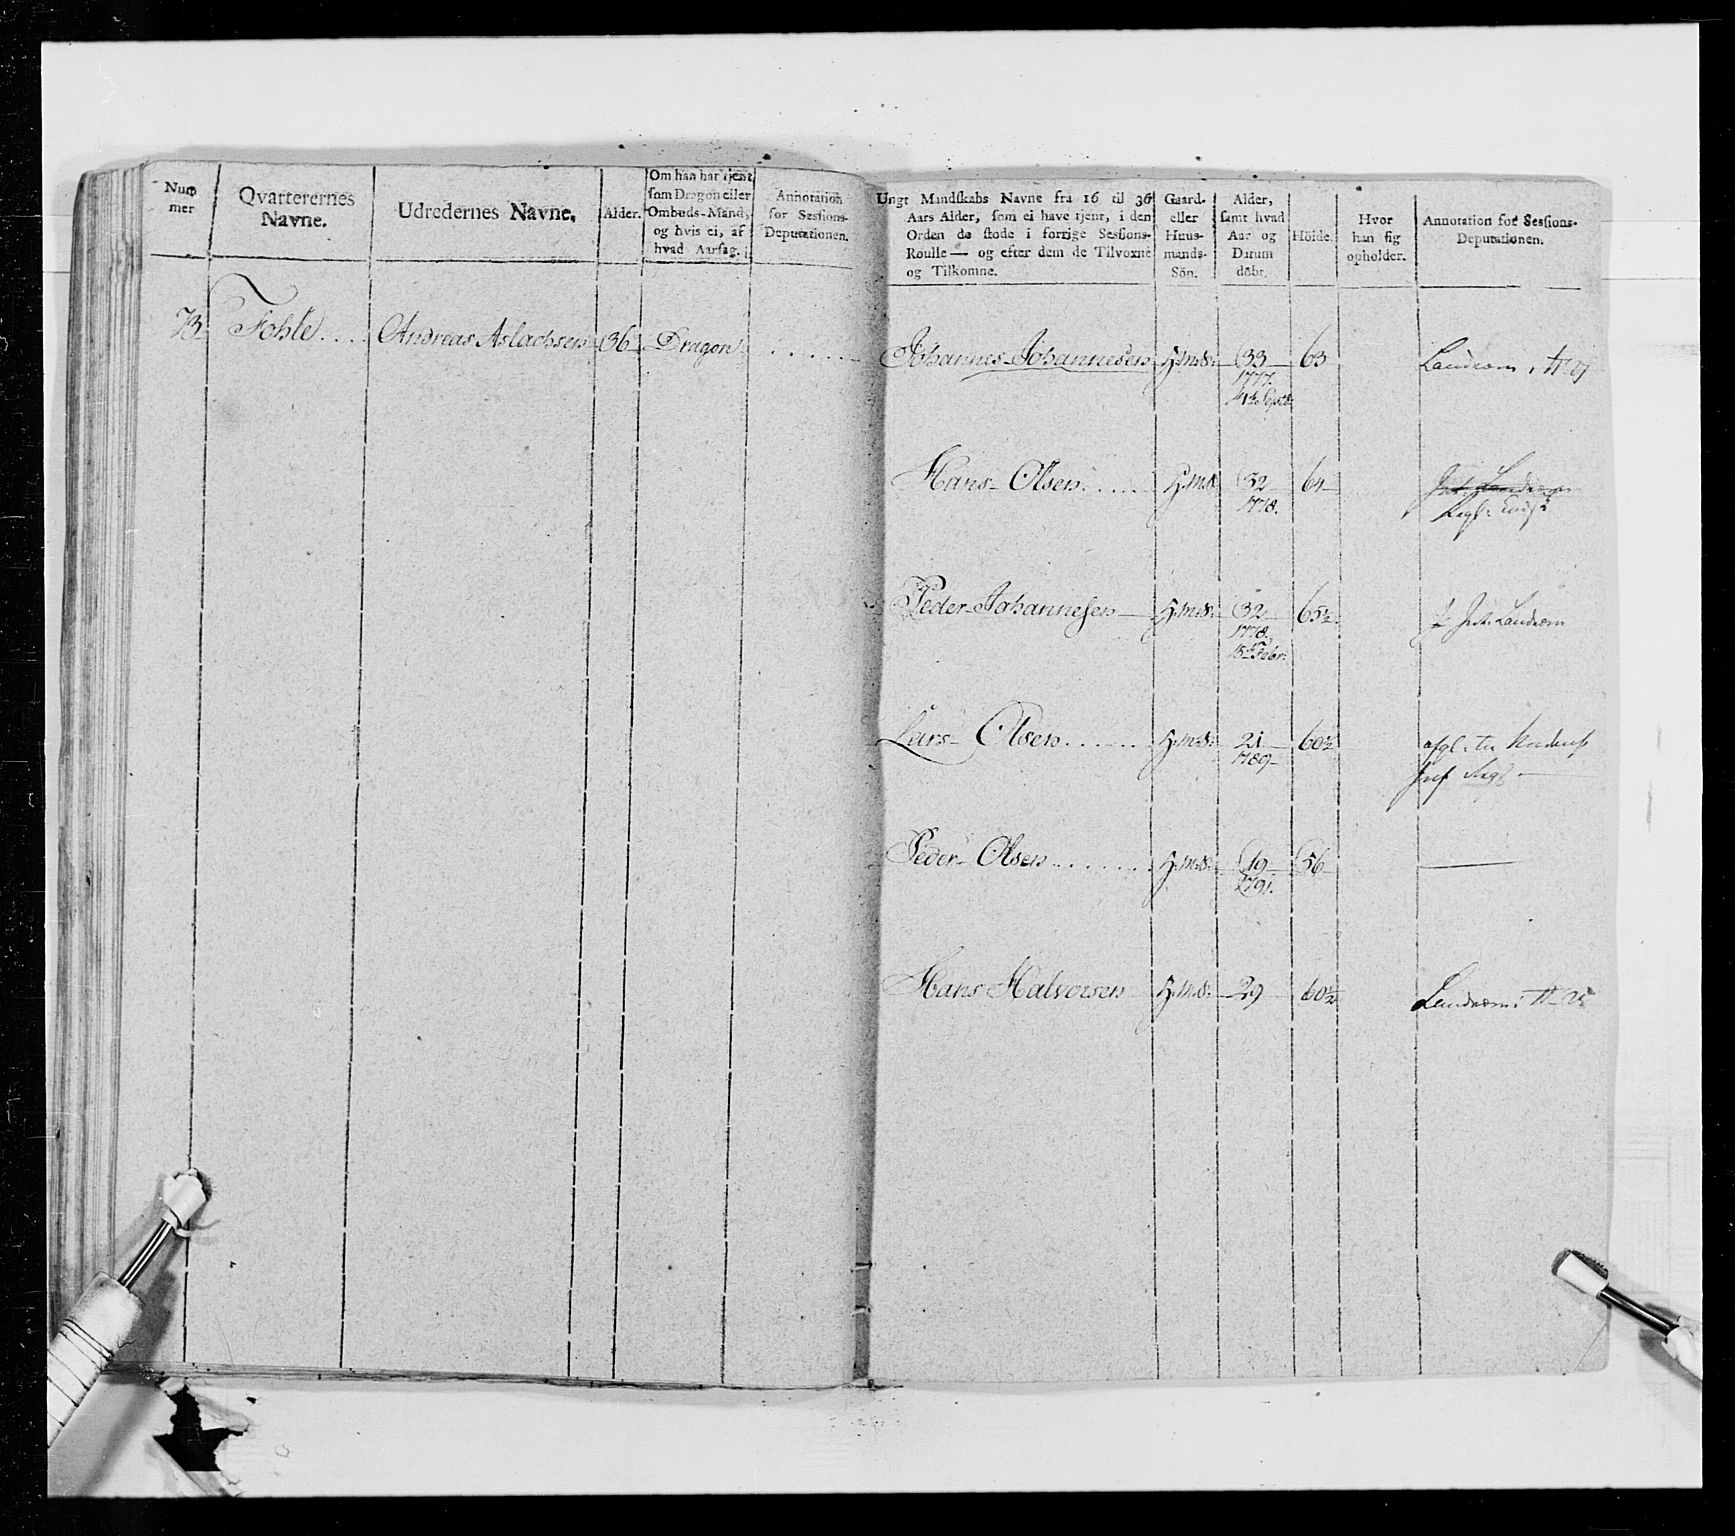 Num
mer
Qvarterernes
Navne.
Udredernes Navne.
Alder.
Om han har tjent
som Dragon eller
Ombuds-Mand,
og hvis ei, af
hvad Aarsag.
Annotation
for Sessions-
Deputationen.
73. Fohle .... Andreas Aslachsen 36 Dragon ......
Ungt Mandskabs Navne fra 16 til 36
Aars Alder, som ei have tjent, i den
Orden de stode i forrige Sessions-
Roulle — og efter dem de Tilvoxne
og Tilkomne.
Gaard-
eller
Huus-
mands-
Sön.
Alder,
samt hvad
Aar og
Datum
döbt.
Höide.
Hvor
han sig
opholder.
Annotation for Sessions-
Deputationen.
Johannes Johannesen H.m.S. 33 63 Landværn
1777.
Septr
Hans Olsen ..... H.m.S. 32 64 Landværn
1778.
Peder Johannesen — H.m.S. 32 65½ Landværn
1778.
15de Febr:
Lars Olsen ...... H.m.S. 21 60½
1789
Peder Olsen ....... H.m.S. 19 56 —
1791.
Hans Halvorsen H.m.S. 29 60½ Landværn